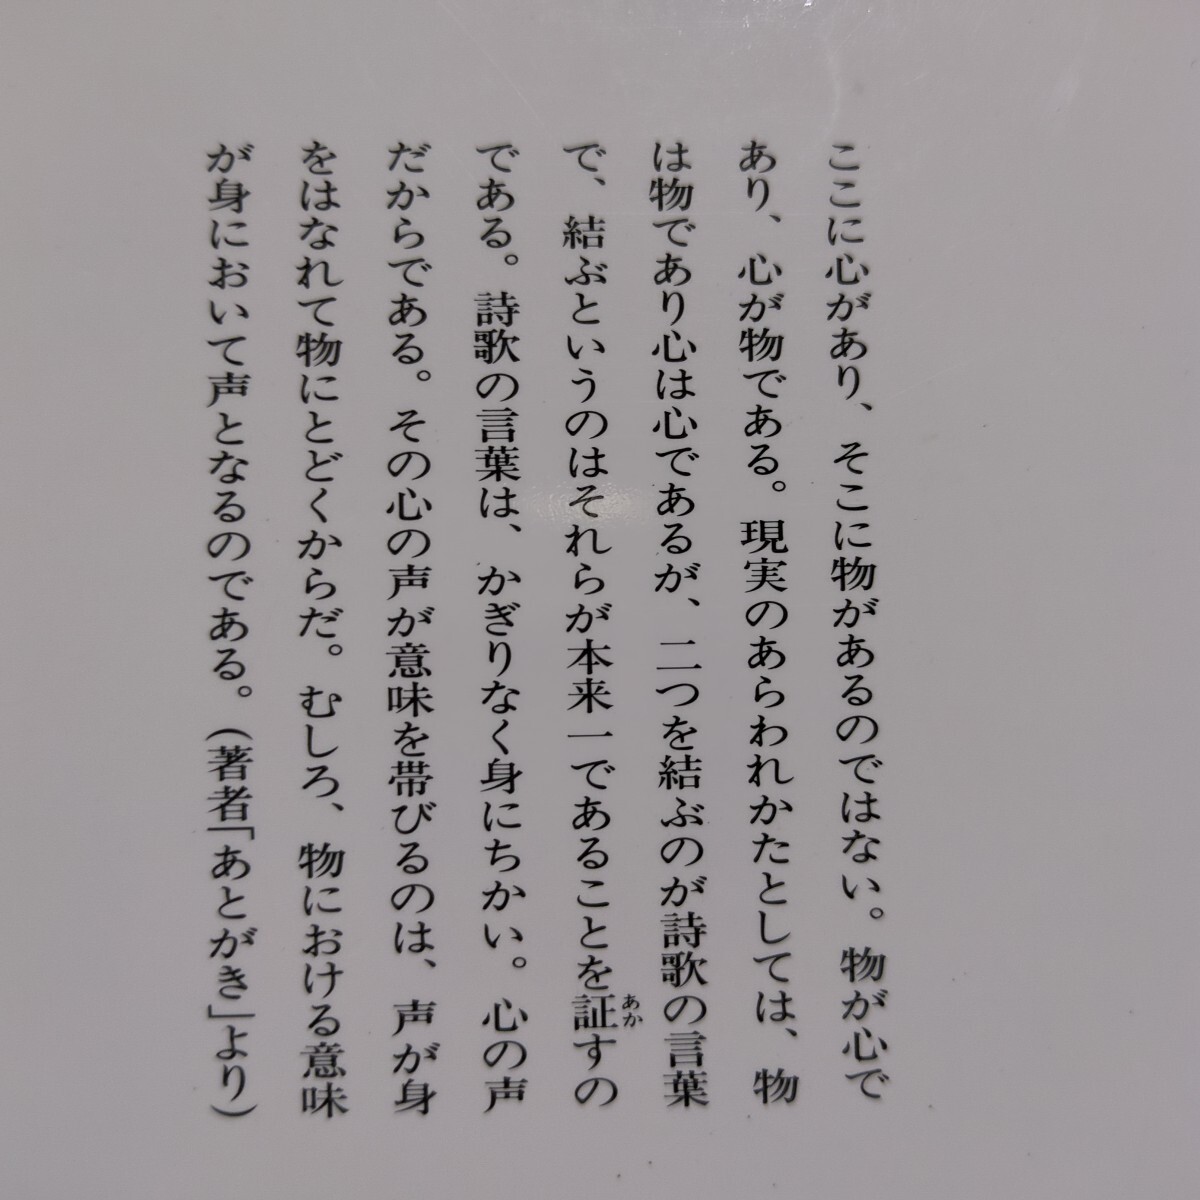 ここに心があり、そこに物があるのではない。物が心で
あり、心が物である。現実のあらわれかたとしては、物
は物であり心は心であるが、二つを結ぶのが詩歌の言葉
で、結ぶというのはそれらが本来一であることを証すの
あか
である。詩歌の言葉は、かぎりなく身にちかい。心の声
だからである。その心の声が意味を帯びるのは、声が身
をはなれて物にとどくからだ。むしろ、物における意味
が身において声となるのである。(著者「あとがき」より)